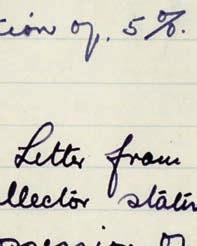 tion of. 5%.
Letter from
llector statin